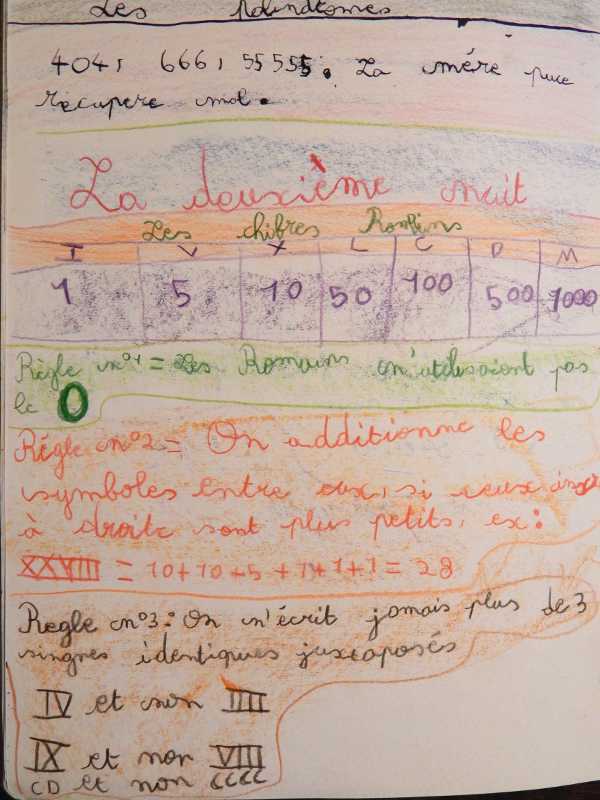 Les palindromes
404, 666, 55555. La mère puce
récupere mol.
La deuxième nuit
Les chibres Romains
I V X L C D M
1 5 10 50 100 500 1000
Règle n°1 = Les Romains n'utilisaient pas
le 0
Règle n°2 = On additionne les
symboles entre eux, si ceux
à droite sont plus petits. ex:
XXVIII = 10+10+5+1+1+1 = 28
Regle n°3: On n'écrit jamais plus de 3
singnes identiques juxtaposés
IV et non IIII
IX et non VIIII
CD et non CCCC